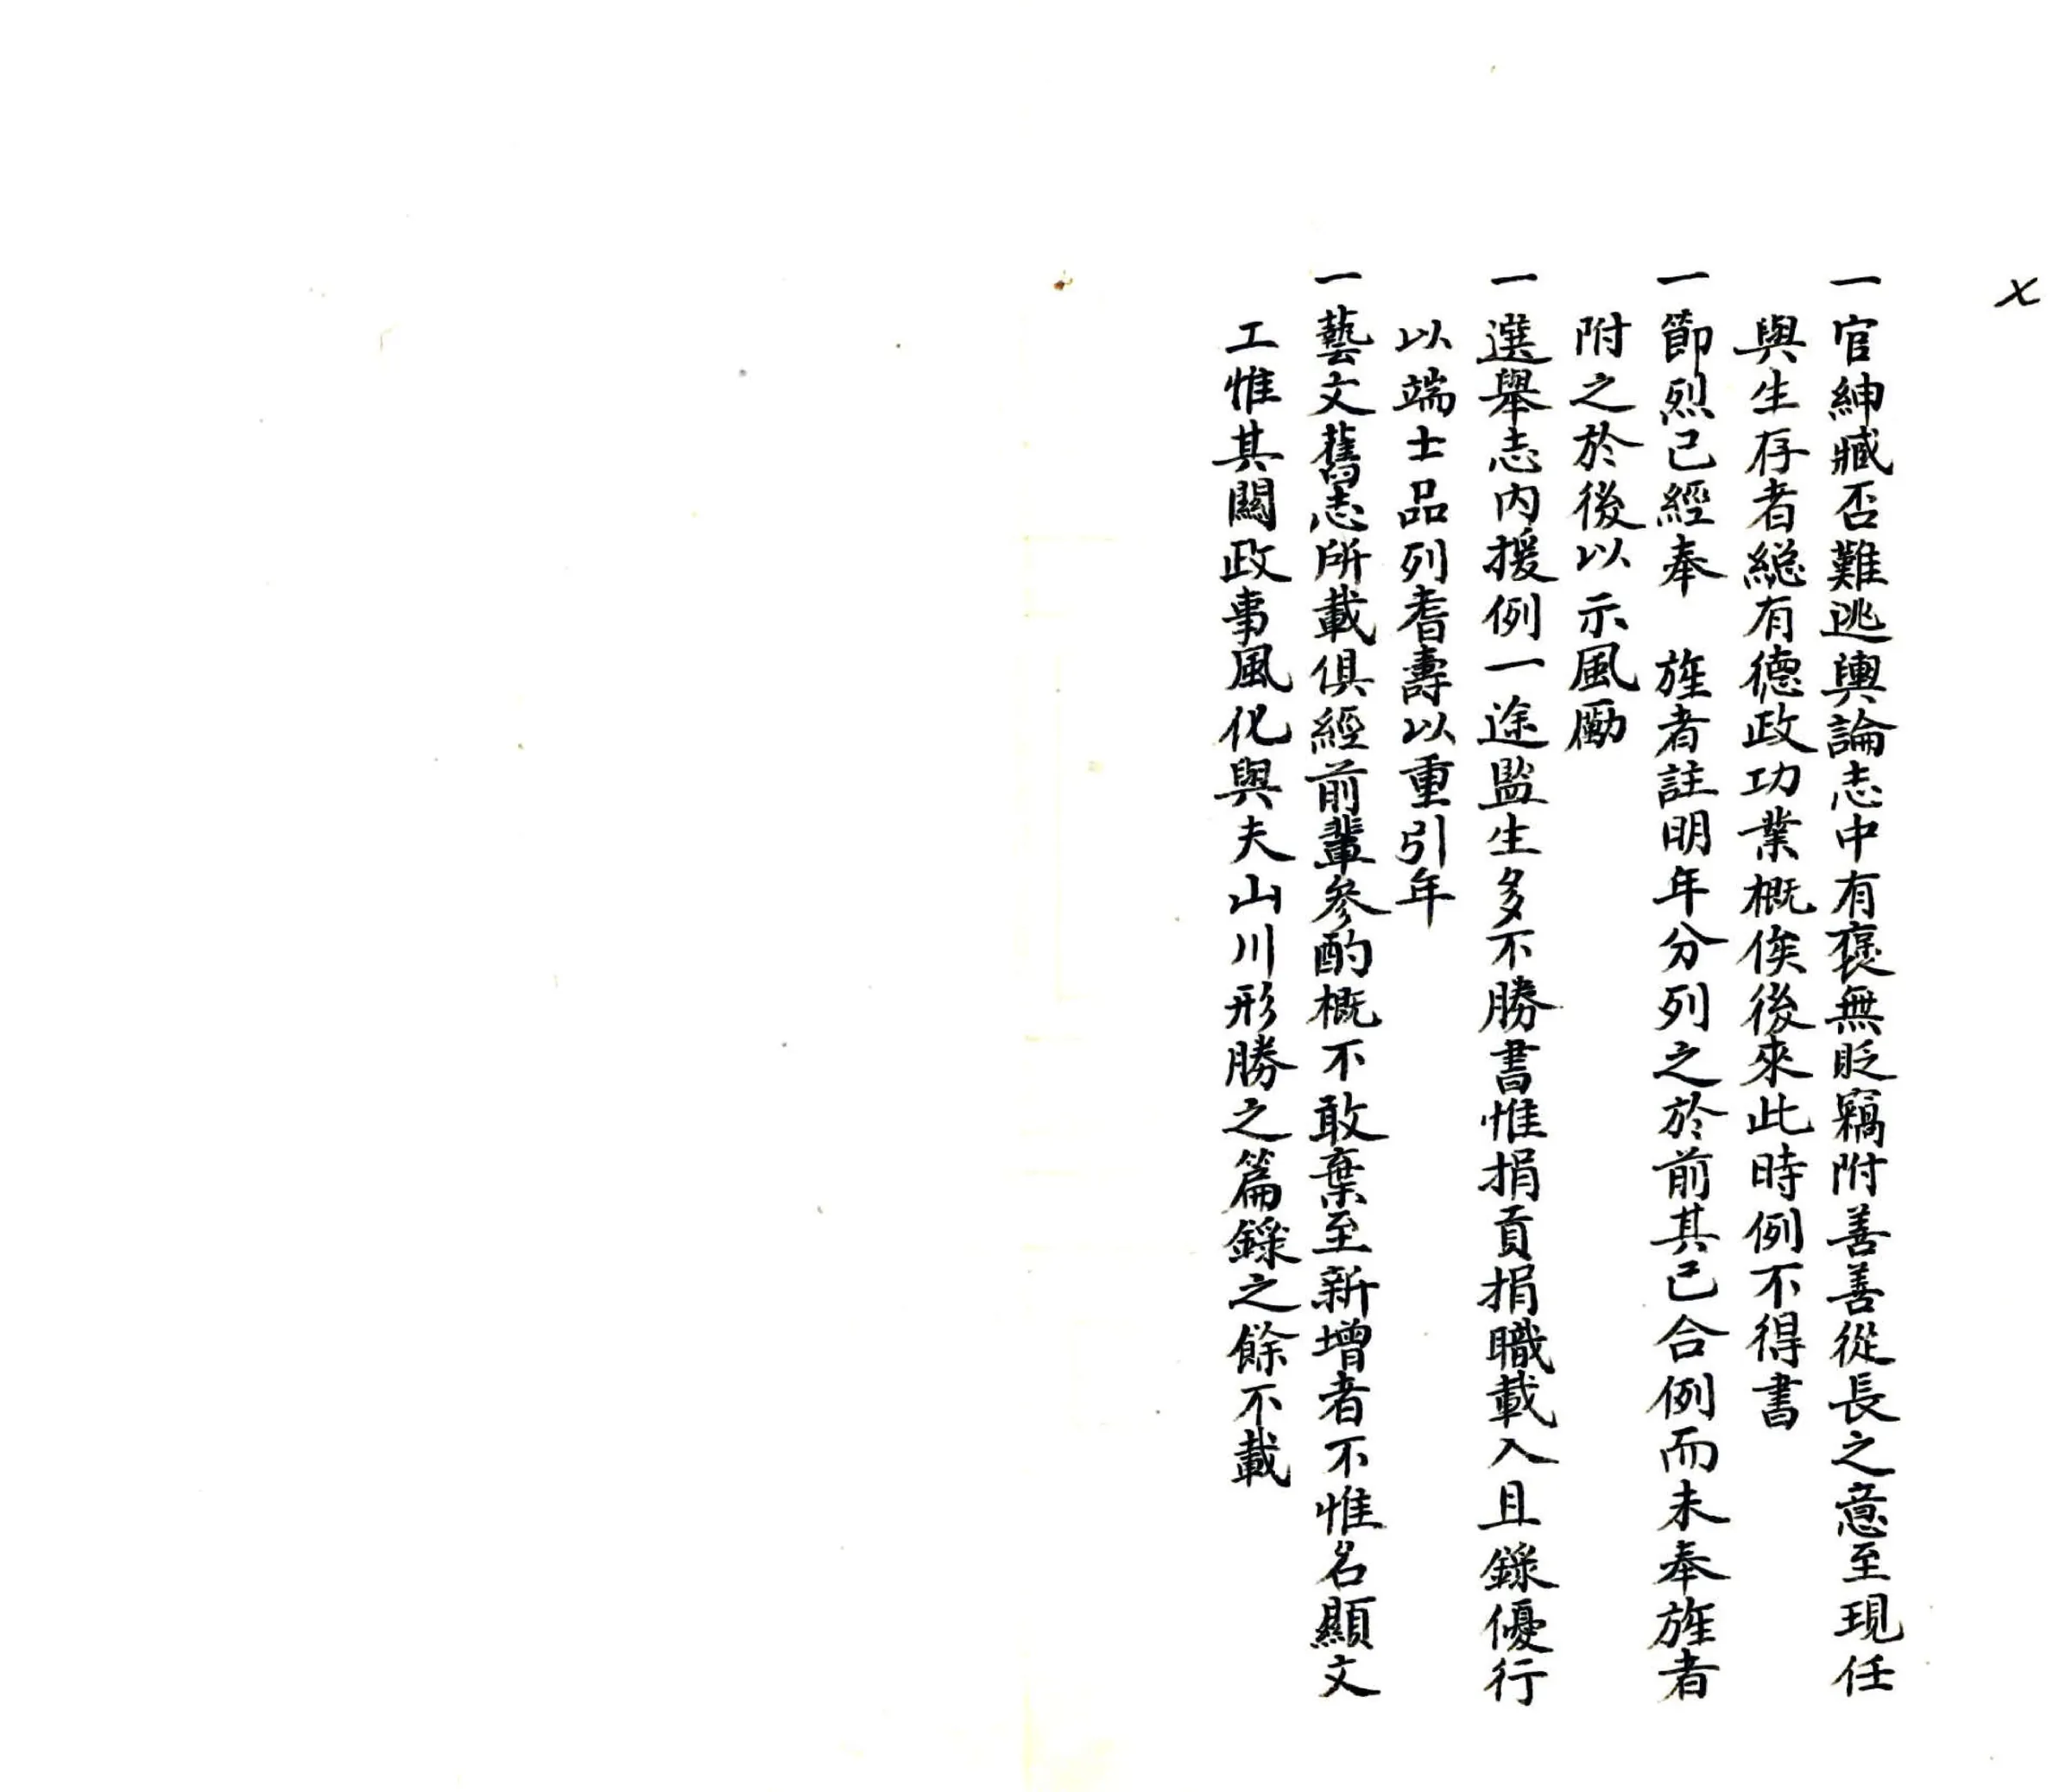 一官紳臧否難逃輿論志中有褒無貶竊附善善從長之意至現任
與生存者縂有德政功業概俟後來此時例不得書
一節烈已經奉　旌者註明年分列之於前其已合例而未奉旌者
附之於後以示風勵
一選舉志內援例一途監生多不勝書惟捐貢捐職載入且錄優行
以端士品列耆壽以重引年
一藝文舊志所載俱經前輩參酌概不敢棄至新增者不惟名顯文
工惟其關政事風化與夫山川形勝之篇錄之餘不載